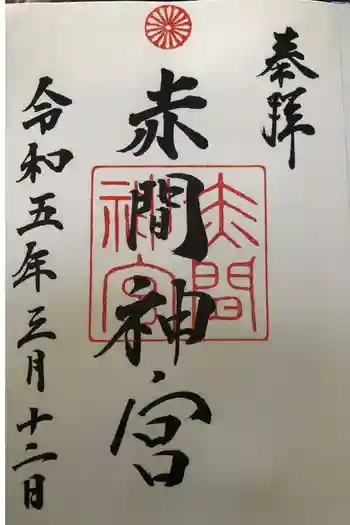 奉拝
赤間神宮
赤間
神宮
令和五年三月十二日